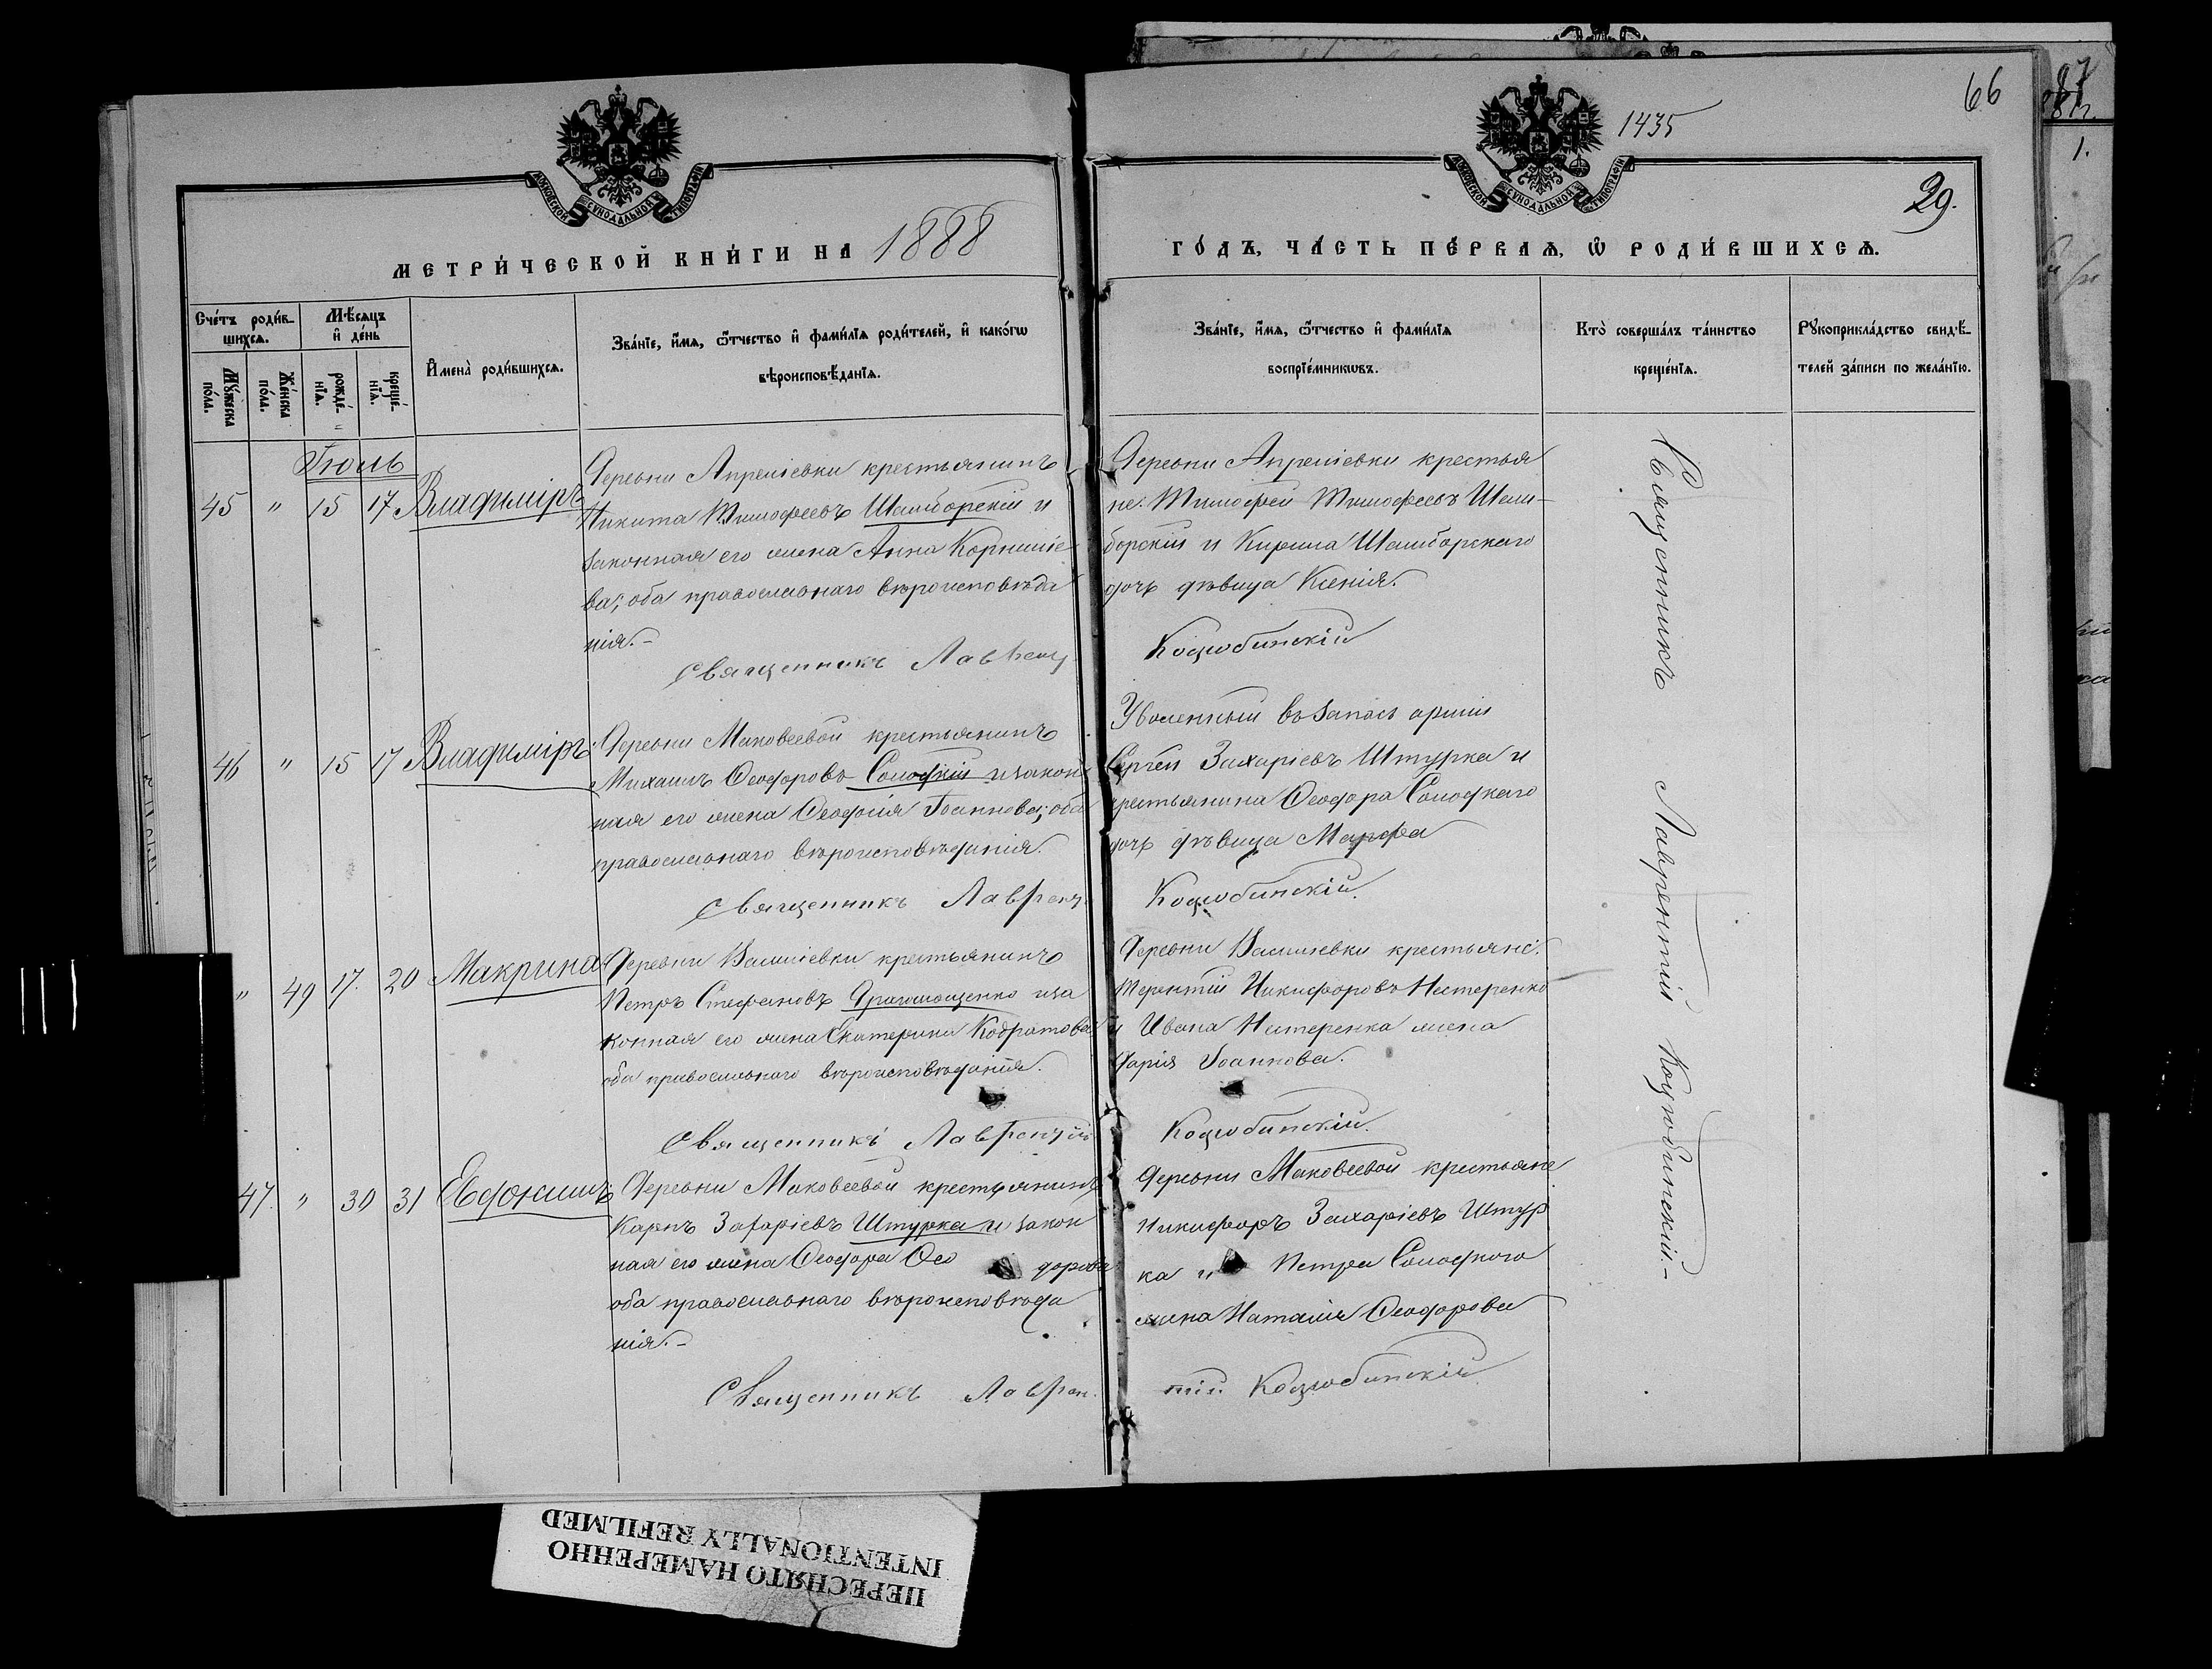 66
1435
29.
МОСКОВСКОЙ СѴНОДАЛЬНОЙ ТИПОГРАФІИ
МОСКОВСКОЙ СѴНОДАЛЬНОЙ ТИПОГРАФІИ
МЕТРИ́ЧЕСКОЙ КНИ́ГИ НА 1888
ГО́ДЪ, ЧА́СТЬ ПЕ́РВАЯ, Ѡ РОДИ́ВШИХСЯ.
Сче́тъ роди́в-
шихся.
Мѣ́сяцъ
и҆ де́нь
Мꙋ́жеска
по́ла.
Же́нска
по́ла.
рожде́-
нїѧ.
креще́-
нїѧ.
И҆мена̀ роди́вшихся.
Зва́нїе, и҆́мѧ, ѻ҆́тчество и҆ фами́лїѧ роди́телей, и҆ како́гѡ
вѣроисповѣ́данїѧ.
Зва́нїе, и҆́мѧ, ѻ҆́тчество и҆ фами́лїѧ
воспрїе́мникѡвъ.
Кто̀ соверша́лъ та́инство
креще́нїѧ.
Рꙋкоприкла́дство свидѣ́-
телей за́писи по жела́нїю.
Іюль
45 " 15 17 Владиміръ
Деревни Апреліевки крестьянинъ
Никита Тимофеевъ Шамборскій и
законная его жена Анна Корниліе
ва; оба православнаго вѣроисповѣда
нія.-
Священникъ Лаврент
Деревни Апреліевки крестья
не: Тимофей Тимофеевъ Шам-
борскій и Кирила Шамборскаго
дочь дѣвица Ксенія.
Коцюбинскій
46 " 15 17 Владиміръ
Деревни Маковеевой крестьянинъ
Михаилъ Ѳеодоровъ Солодкій и закон
ная его жена Ѳеодосія Іоаннова; оба
православнаго вѣроисповѣданія.
Священникъ Лаврент
Уволенный въ запасъ арміи
Сергѣй Захаріевъ Штурка и
крестьянина Ѳеодора Солодкаго
дочь дѣвица Марфа
Коцюбинскій.
" 49 17. 20 Макрина
Деревни Васильевки крестьянинъ
Петръ Стефановъ и за
конная его жена Екатерина Кодратова
оба православнаго вѣроисповѣданія.
Священникъ Лаврентій
Деревни Васильевки крестьяне:
Терентій Никифоровъ Нестеренко
и Ивана Нестеренка жена
Дарія Іоаннова.
Коцюбинскій.
47. " 30 31 Евдокимъ
Деревни Маковеевой крестьянинъ
Карпъ Захаріевъ Штурка и закон
ная его жена Ѳеодора Ѳео дорова
оба православнаго вѣроисповѣда
нія.-
Священникъ Лаврен.
Деревни Маковеевой крестьяне
Никифоръ Захаріевъ Штур
ка и Петра Солодкого
жена Наталія Ѳеодорова
тій Коцюбинскій
Священникъ Лаврентій Коцюбинскій.-
ПЕРЕСНЯТО НАМЕРЕННО
INTENTIONALLY REFILMED